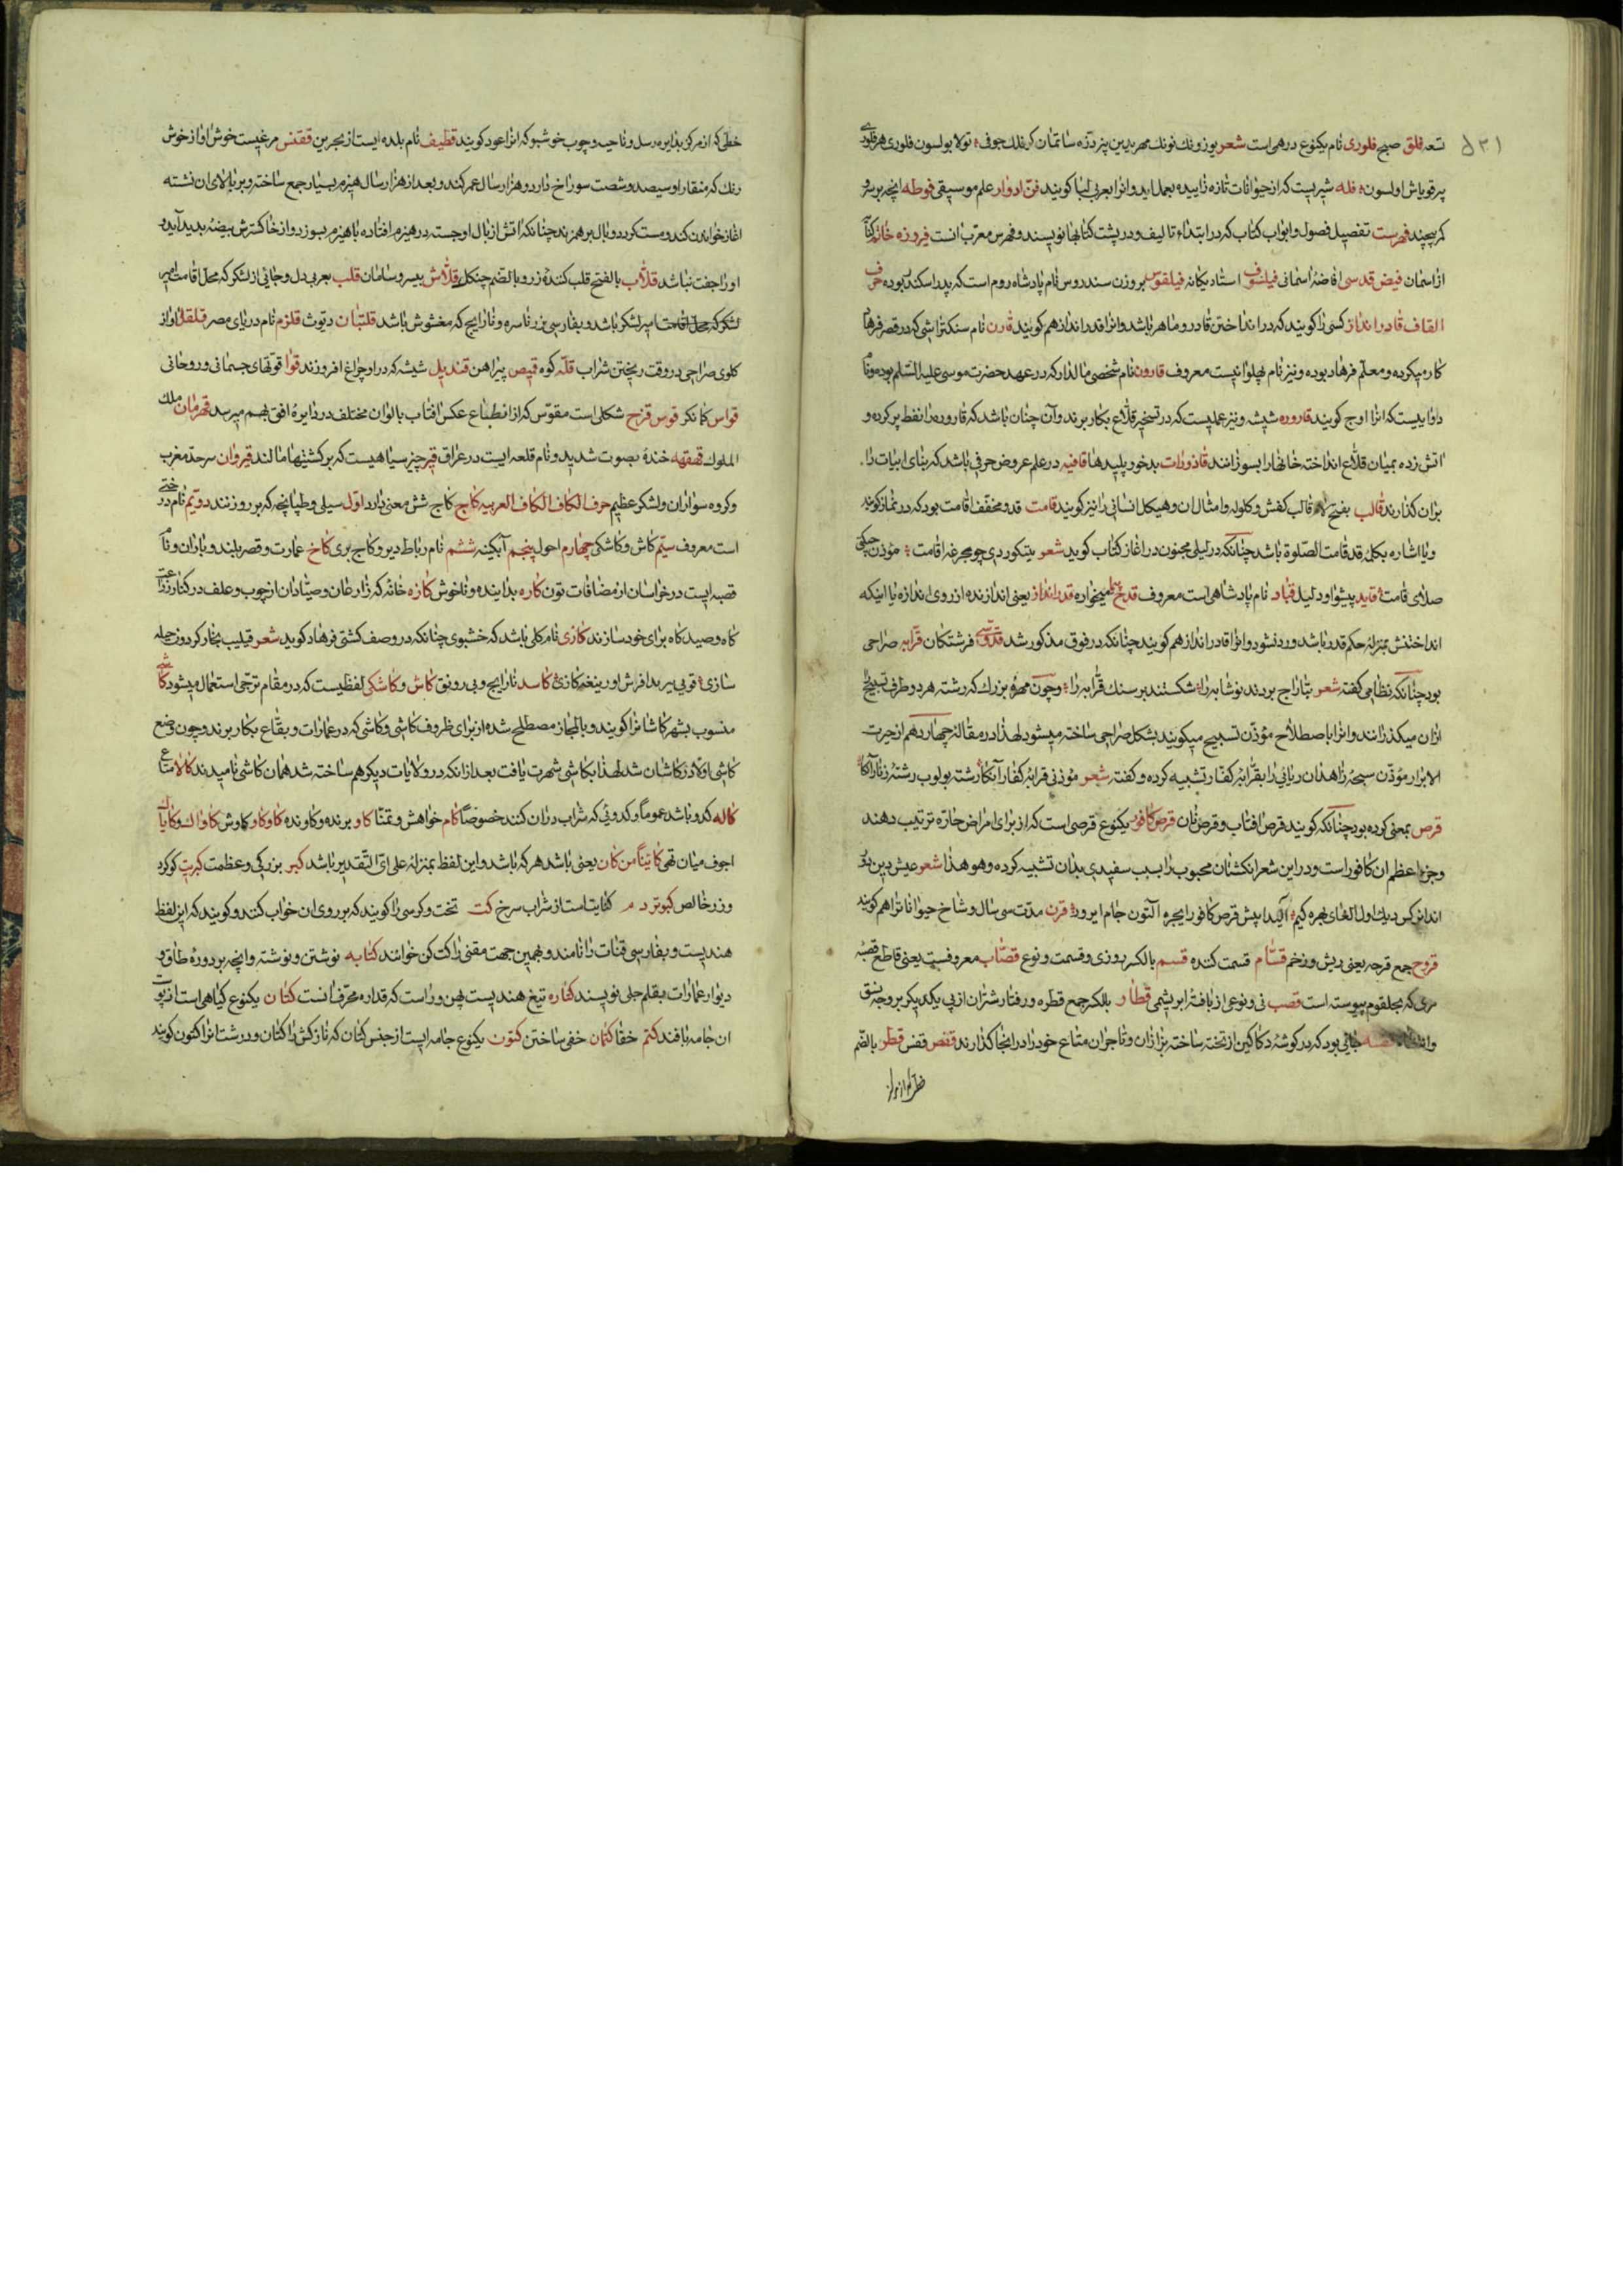 تعه فلق صبح فلوری نام یکنوع درهمی است شعر
فله شیریست که از حیوانات تازه زاییده بعمل اید وانرا بعربی لبا کویند فن ادوار علم موسیقی فوطه انچه بر سر و
کمر پیچند فهرست تفصیل فصول وابواب کتاب که در ابتداء تالیف و در پشت کتابها نویسند و فهرس معرب انست فیروزه خانه
از اسمان فیض قدسی افاضهٔ اسمانی فیلسوف استاد یکانه فیلقوس بر وزن سندروس نام پادشاه روم است که پدر اسکندر بوده حرف
القاف قادر انداز کسی را کویند که در انداختن قادر و ماهر باشد وانرا قدر انداز هم کویند قارن نام سنکتراشی که در قصر فرهاد
کار میکرده و معلم فرهاد بوده و نیز نام پهلوانیست معروف قارون نام شخصی مالدار که در عهد حضرت موسی علیه السلم بوده
که انرا اوج کویند قاروره شیشه و نیز عملیست که در تسخیر قلاع بکار برند وآن چنان باشد که قاروره را نفط پر کرده و
اتش زده بمیان قلاع انداخته خانها را بسوزانند قاذورات بدخو و پلیدها قافیه در علم عروض حرفی باشد که بنای ابیات را
بران کذارند قالب بفتح لام قالب کفش و کلوله و امثال ان و هیکل انسانی را نیز کویند قامت قد و مخفف اقامت بود که در نماز کویند
و یا اشاره بکلمهٔ قد قامت الصلوة باشد چنانکه در لیلی مجنون در اغاز کتاب کوید شعر
صلای قامت قاید پیشوا و دلیل قباد نام پادشاهی است معروف قدح میخواره قدر انداز یعنی اندازنده از روی اندازه یا اینکه
انداختنش بمنزلهٔ حکم قدر باشد و رد نشود وانرا قادر انداز هم کویند چنانکه در فوق مذکور شد قدوسی فرشتکان قرابه صراحی
بود چنانکه نظامی کفته شعر بتاراج بردند نوشابه را شکستند بر سنک قرابه را و چون مهره بزرک که رشته هر دو طرف تسبیح
ازان میکذرانند وانرا باصطلاح مؤذن تسبیح میکویند بشکل صراحی ساخته میشود لهذا در مقالهٔ چهاردهم از حیرت
الابرار مؤذن سبحهٔ زاهدان ریائی را بقرابهٔ کفار تشبیه کرده و کفته شعر
قرص بمعنی کرده بود چنانکه کویند قرص افتاب و قرص نان قرص کافور یکنوع قرصی است که از برای امراض حاره ترتیب دهند
وجزو اعظم ان کافور است و در این شعر انکشتان محبوب را بسبب سفیدی بدان تشبیه کرده وهو هذا شعر
قرن مدت سی سال و شاخ حیوانات را هم کویند
قروح جمع قرحه یعنی ریش و زخم قسام قسمت کننده قسم بالکسر روزی و قسمت و نوع قصاب معروفست یعنی قاطع قصبه
مری که بحلقوم پیوسته است قصب نی و نوعی از بافتهٔ ابریشمی قطار بالکسر جمع قطره و رفتار شتران از پی یکدیکر بر وجه نسق
جائی بود که در کوشهٔ دکاکین از تخته ساخته بزازان و تاجران متاع خود را در انجا کذارند قفص قفس قطر بالضم
خطی که از مرکز بدایره رسد و ناحیه و چوب خوشبو که انرا عود کویند قطیف نام بلده ایست از بحرین ققنس مرغیست خوش اواز خوش
رنک که منقار او سیصد و شصت سوراخ دارد و هزار سال عمر کند و بعد از هزار سال هیزم بسیار جمع ساخته و بر بالای ان نشسته
اغاز خواندن کند و مست کردد و بال بر هم زند چنانکه اتش از بال او جسته در هیزم افتاده با هیزم بسوزد و از خاکسترش بیضه پدید آید و
او را جفت نباشد قلاب بالفتح قلب کنندهٔ زر و بالضم چنکل قلاش بیسر و سامان قلب بعربی دل و جائی از لشکر که محل اقامت امیر
لشکر باشد و بفارسی زر ناسره و نارایج که مغشوش باشد قلتبان دیوث قلزم نام دریای مصر قلقل اواز
کلوی صراحی در وقت ریختن شراب قله کوه قمیص پیراهن قندیل شیشه که در او چراغ افروزند قوا قوتهای جسمانی و روحانی
قواس کمانکر قوس قزح شکلی است مقوس که از انطباع عکس افتاب بالوان مختلف در دایرهٔ افق بهم میرسد قهرمان ملک
الملوک قهقهه خنده بصوت شدید و نام قلعه ایست در عراق قیر چیز سیاهیست که بر کشتیها مالند قیروان سرحد مغرب
و کروه سواران و لشکر عظیم حرف الکاف الکاف العربیه کاج کاج شش معنی دارد اول سیلی و طپانچه که بر رو زنند دویم نام درختی
است معروف سیم کاش و کاشکی چهارم احول پنجم آبکینه ششم نام رباط دیر و کاج بری کاخ عمارت و قصر بلند و باران و نام
قصبه ایست در خراسان از مضافات تون کاره بد اینده و ناخوش کازه خانه که زارعان و صیادان از چوب و علف در کنار زراعت
کاه و صید کاه برای خود سازند کازی نام کلی باشد که خشبوی چنانکه در وصف کشتی فرهاد کوید شعر
کاسد نارایج و بی رونق کاش و کاشکی لفظیست که در مقام ترجی استعمال میشود کاشی
منسوب بشهر کاشانرا کویند و بالمجاز مصطلح شده از برای ظروف کاشی و کاشی که در عمارات و بقاع بکار برند و چون وضع
کاشی اولا در کاشان شد لهذا بکاشی شهرت یافت بعد ازانکه در ولایات دیکر هم ساخته شد همان کاشی نامیدند کالا متاع
کاله کدو باشد عموما و کدوئی که شراب دران کنند خصوصا کام خواهش و تمنا کاو برنده و کاونده کاوکاو کاوش
اجوف میان تهی کاینا من کان یعنی باشد هر که باشد و این لفظ بمنزلهٔ علی ای التقدیر باشد کبر بزرکی و عظمت کبریت کوکرد
و زر خالص کبوتر دم کنایت است از شراب سرخ کت تخت و کرسی را کویند که بر روی ان خواب کنند و کویند که این لفظ
هندیست و بفارسی قنات را نامند و بهمین جهت مقنی را کت کن خوانند کتابه نوشتن و نوشته وانچه بر دورهٔ طاق و
دیوار عمارات بقلم جلی نویسند کتاره تیغ هندیست پهن و راست که قداره محرف انست کتان یکنوع کیاهی است از پوست
ان جامه بافند کتم خفا کتمان خفی ساختن کتون یکنوع جامه ایست از جنس کتان که نازکش را کتان و درشت انرا کتون کویند